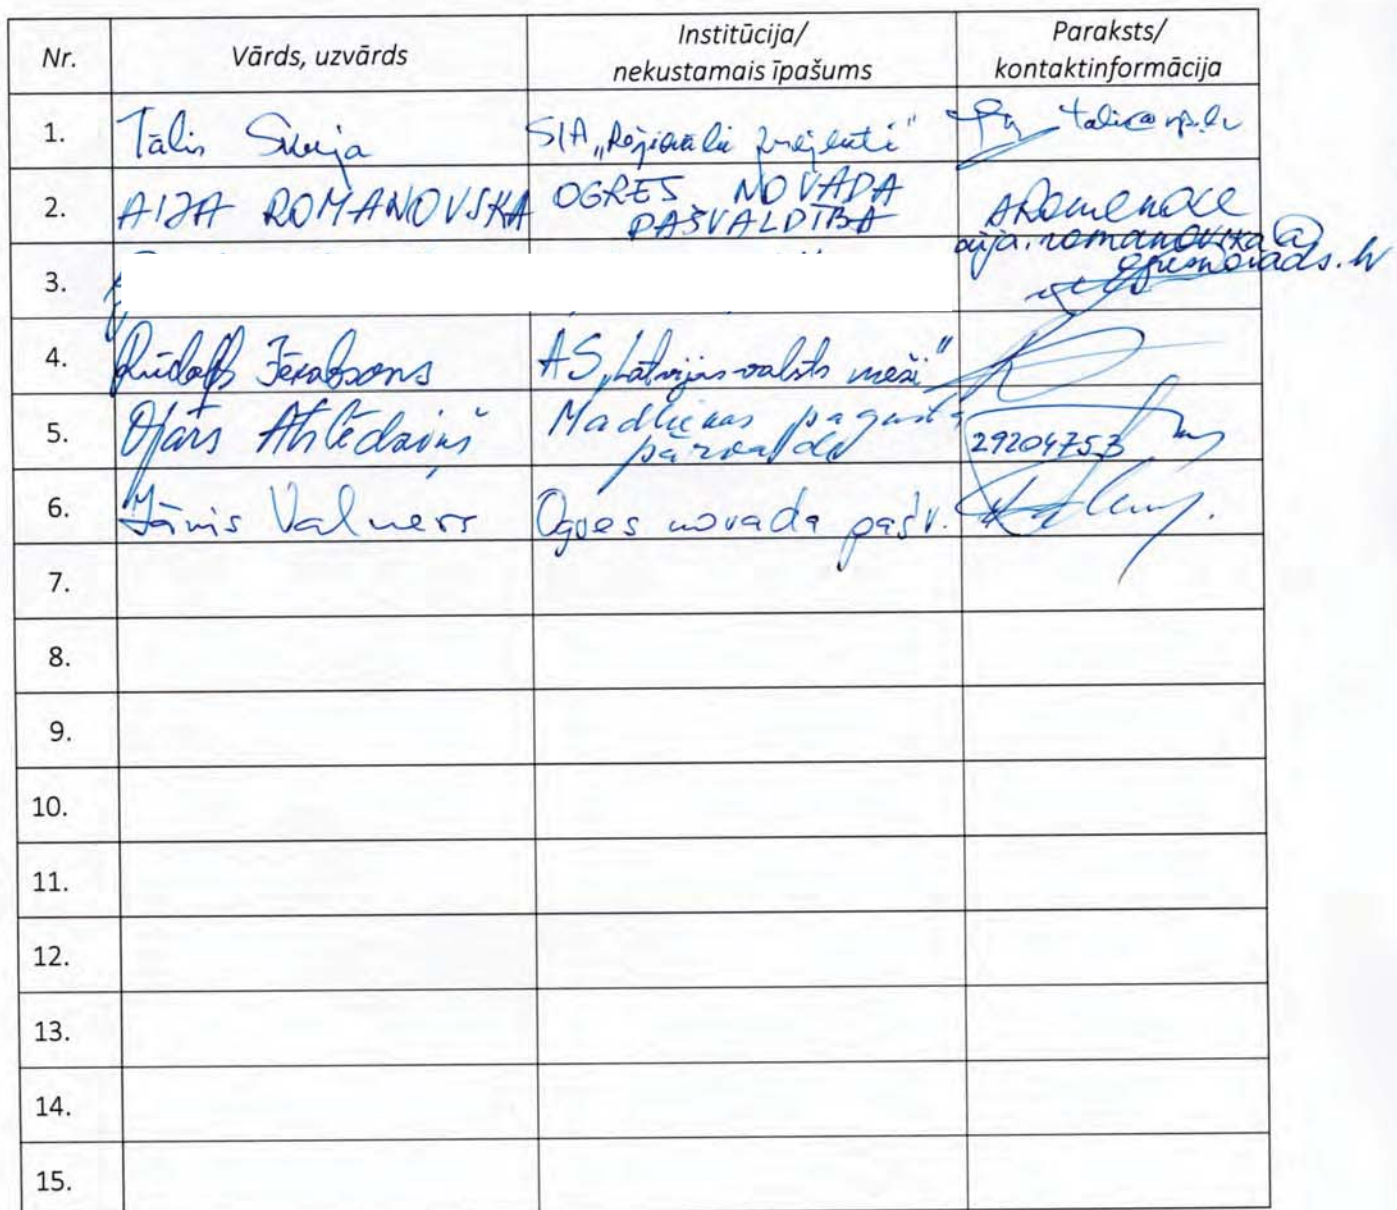 Nr. Vārds, uzvārds Institūcija/ nekustamais īpašums Paraksts/ kontaktinformācija
1. Tālis SIA „Reģionālie projekti"
2. AIJA ROMANOVSKA OGRES NOVADA PAŠVALDĪBA
aija.romanovska@
ogresnovads.lv
3.
4. Rūdolfs AS „Latvijas valsts meži"
5. Ojārs Atslēdziņš Madlienas pagasta pārvalde 29204753
6. Jānis Valners Ogres novada pašv.
7.
8.
9.
10.
11.
12.
13.
14.
15.